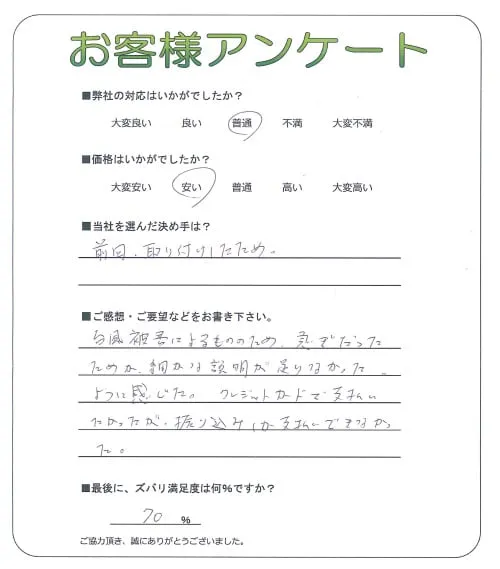 お客様アンケート
■弊社の対応はいかがでしたか？
大変良い 良い 普通 不満 大変不満
■価格はいかがでしたか？
大変安い 安い 普通 高い 大変高い
■当社を選んだ決め手は？
前回、取り付けしたため。
■ご感想・ご要望などをお書き下さい。
台風被害によるもののため、急ぎだった
ためか、細かな説明が足りなかった
ように感じた。クレジットカードで支払い
たかったが、振り込みしか支払いできなかっ
た。
■最後に、ズバリ満足度は何％ですか？
70 ％
ご協力頂き、誠にありがとうございました。